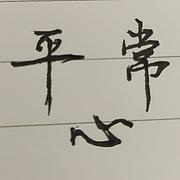 平常
心